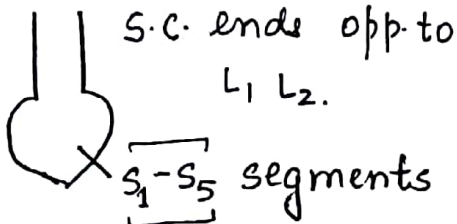 S.C. ends opp. to
L₁ L₂.
S₁-S₅ segments